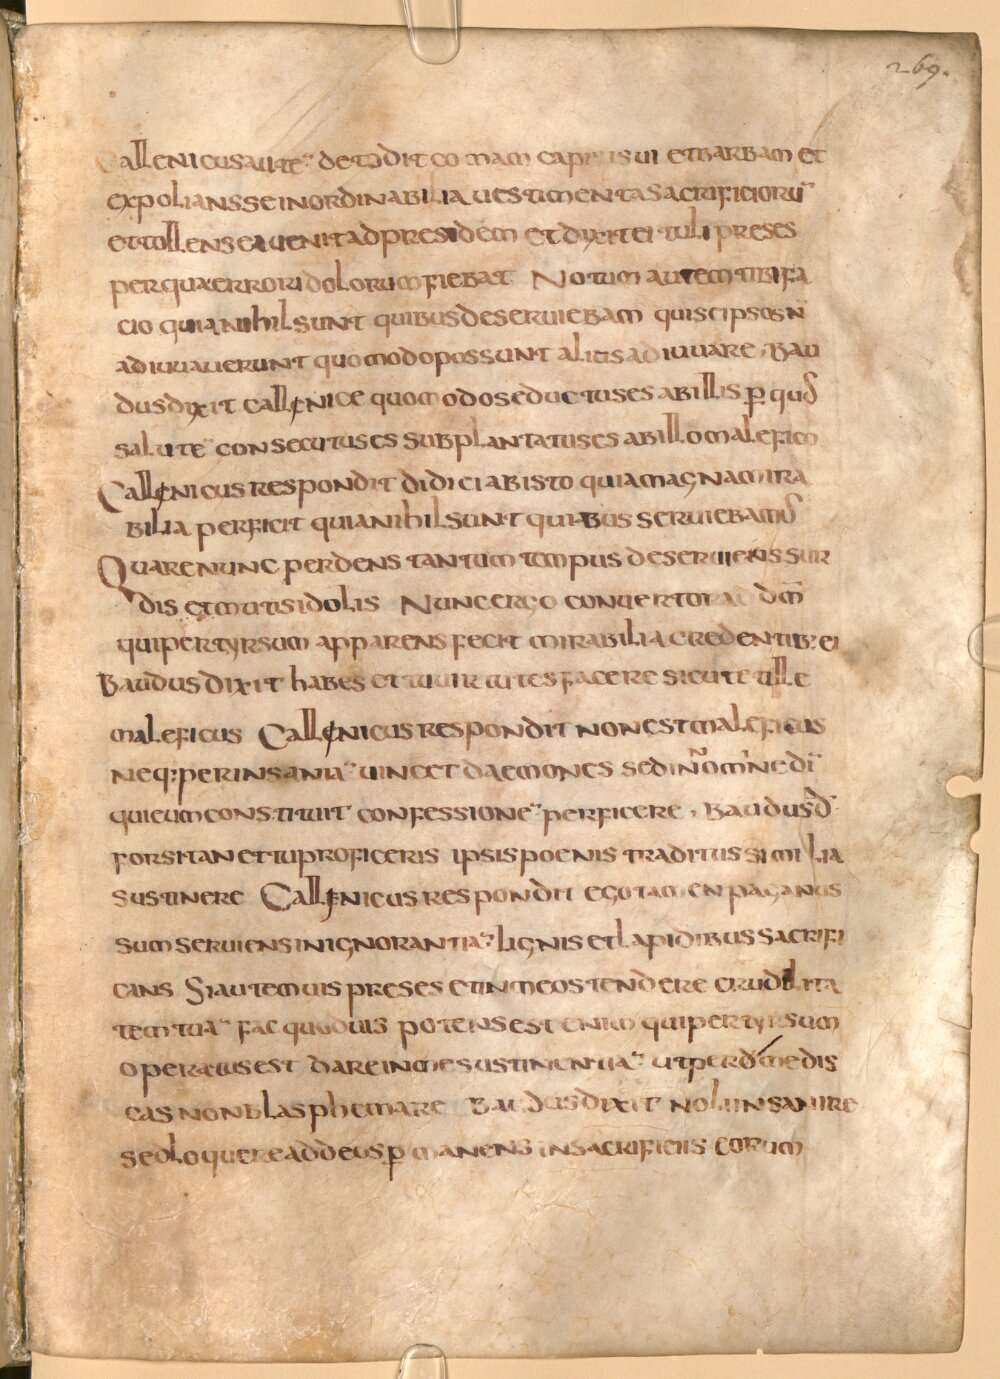 269.
Callenicus aute᷃ detodit comam capitis sui et barbam et
expolians se inordinabilia vestimenta sacrificioru᷃
et tollens ea venit ad presidem et dixit ei tuli preses
per quæ erroridolorum fiebat Notum autem tibi fa
cio quia nihil sunt quibus deserviebam qui se ipsos n̄
adiuvaverunt quomodo possunt alicis adiuvare, Bau
dus dixit Callęnice quomodo seductus es ab illis ꝑ quos
salute᷃ consecutus es subplantatus es ab illo malefico
Callęnicus respondit didici ab isto quia magna mira
bilia perficit quia nihil sunt quibus serviebamus
Quare nunc perdens tantum tempus deserviens sur
dis et mutis idolis Nunc ergo convertor ad dm̄
qui per tyrsum apparens fecit mirabilia credentib: ei
Baudus dixit habes et tu virtutes facere sicut et ille
maleficus Callęnicus respondit non est maleficus
neq: per insania᷃ vincet daemones sed in nōmine di᷃
qui eum constituit confessione᷃ perficere, Baudus d̄
forsitan et tu proficeris ipsis poenis traditus similia
sustinere Callęnicus respondit ego tamen paganus
sum serviens in ignorantia᷃ lignis et lapidibus sacrifi
cans Si autem vis preses et in me ostendere crudelita
tem tua᷃ fac quod vis potens est enim qui per tyrsum
operatus est dare in me sustinentia᷃ ut per dm̄ me dis
cas non blasphemare Baudus dixit noli insanire
sed loquere ad deos ꝑmanens in sacrificiis eorum